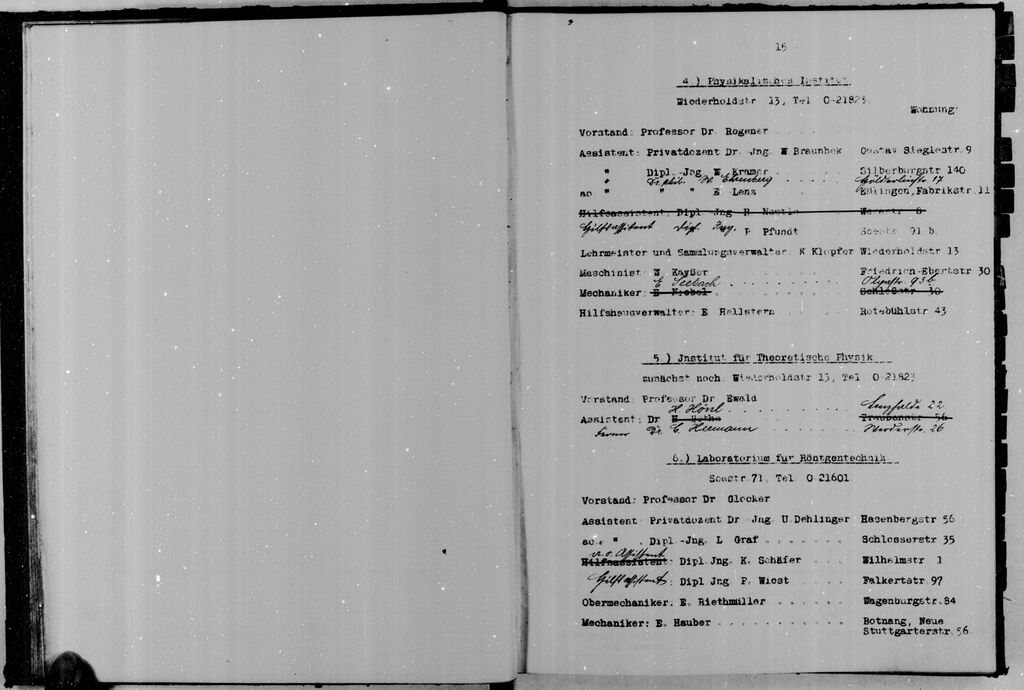 15
4.) Physikalisches Institut
Wiederholdstr 13, Tel 0-21823
Wohnung:
Vorstand: Professor Dr Regener
Assistent: Privatdozent Dr.-Jng. W Braunbek Gustav Sieglestr.9
" Dipl.-Jng W. Kramer Silberburgstr 140
" Dr. phil. W. Ehrenberg Hölderlinstr. 17
ao " " " E Lenz Eßlingen, Fabrikstr.11
Hilfsassistent: Dipl Jng R Nestle Wernstr 8
Hilfsassistent Dipl. Ing. P Pfundt Seestr 91 b.
Lehrmeister und Sammlungsverwalter K Klopfer Wiederholdstr 13
Maschinist W Kayßer Friedrich-Ebertstr 30
E Seebach Olgastr. 93b
Mechaniker: E Niebel Schloßstr 30
Hilfshausverwalter: E Hellstern Rotebühlstr 43
5.) Jnstitut für Theoretische Physik
zunächst noch: Wiederholdstr 13, Tel 0-21823
Vorstand: Professor Dr Ewald
H. Hönl 22
Assistent: Dr H Bethe Traubenstr 56
Ferner Dr. C. Hermann Werderstr. 26
6.) Laboratorium für Röntgentechnik
Seestr 71, Tel 0-21601
Vorstand: Professor Dr Glocker
Assistent: Privatdozent Dr Jng U Dehlinger Hasenbergstr 56
ao " ". Dipl.-Jng. L Graf Schlosserstr 35
a. o. Assistent
Hilfsassistent: Dipl Jng. K. Schäfer Wilhelmstr 1
Hilfsassistent: Dipl Jng P. Wiest Falkertstr 97
Obermechaniker: E. Riethmüller Wagenburgstr.84
Mechaniker: E. Hauber Botnang, Neue
Stuttgarterstr.56